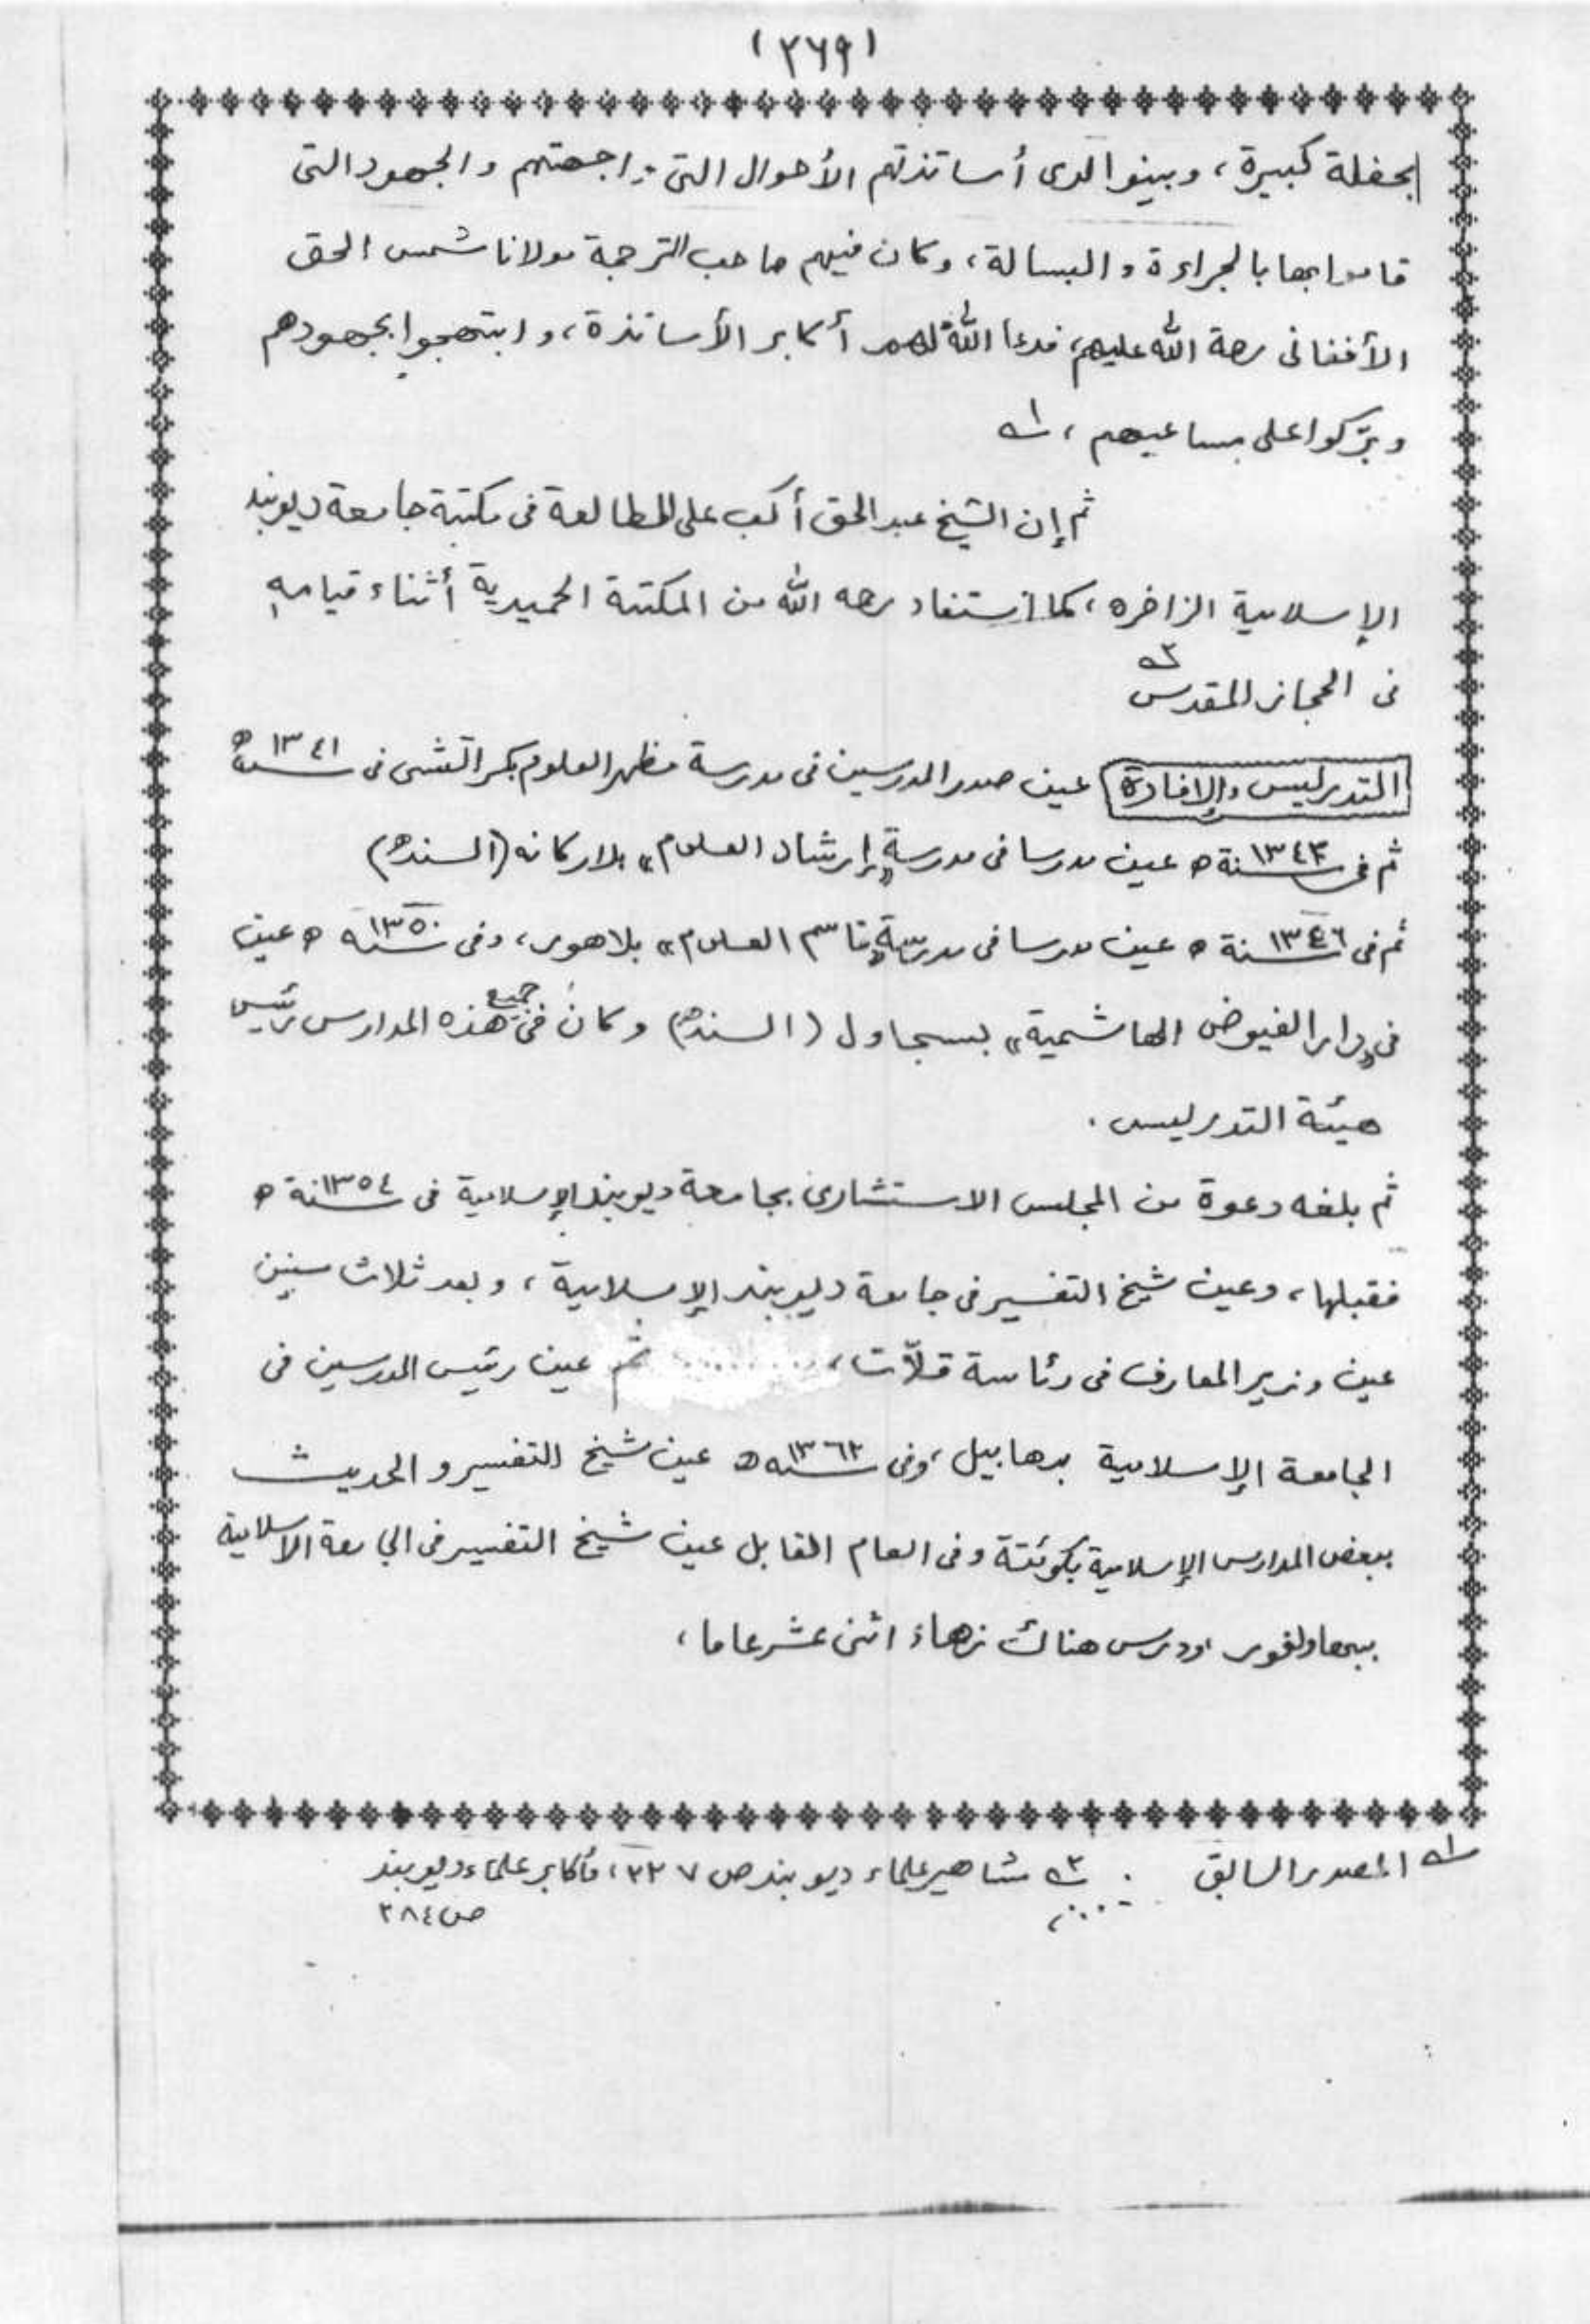 (٢٦٩)
بحفلة كبيرة، وبينوا لدى أساتذتهم الأحوال التى واجهتهم والجهود التى
قاموا بها بالجراءة والبسالة، وكان فيهم صاحب الترجمة مولانا شمس الحق
الأفغانى رحمة الله عليهم، فدعا الله لهم أكابر الأساتذة، وابتهجوا بجهودهم
وبرّكوا على مساعيهم، ١ـه
ثم إن الشيخ عبد الحق أكب على المطالعة فى مكتبة جامعة ديوبند
الإسلامية الزاخره، كما استفاد رحمه الله من المكتبة الحميدية أثناء قيامه
فى الحجاز المقدس ٢ـه
التدريس والإفادة عين صدر المدرسين فى مدرسة مظهر العلوم بكراتشى فى سنة ١٣٤١ه
ثم فى سنة ١٣٤٣ه عين مدرسا فى مدرسة «إرشاد العلوم» بلاركانه (السنده)
ثم فى سنة ١٣٤٦ه عين مدرسا فى مدرسة «قاسم العلوم» بلاهور، وفى سنه ١٣٥٠ه عين
فى «دار الفيوض الهاشمية» بسجاول (السنده) وكان فى جميع هذه المدارس رئيس
هيئة التدريس.
ثم بلغه دعوة من المجلس الاستشارى بجامعة ديوبند الإسلامية فى سنة ١٣٥٤ه
فقبلها، وعين شيخ التفسير فى جامعة ديوبند الإسلامية، وبعد ثلاث سنين
عين وزير المعارف فى رئاسة قلاّت، ....... ثم عين رئيس المدرسين فى
الجامعة الإسلامية بدهابيل، وفى سنه ١٣٦٢ه عين شيخ التفسير والحديث
ببعض المدارس الإسلامية بكوئتة وفى العام المقابل عين شيخ التفسير فى الجامعة الاسلامية
ببهاولفور، ودرس هناك زهاء اثنى عشر عاما،
١ـه المصدر السابق . ٢ـه مشاهير علماء ديوبند ص ٢٢٧، وأكابر علماء ديوبند
ص ٢٨٤